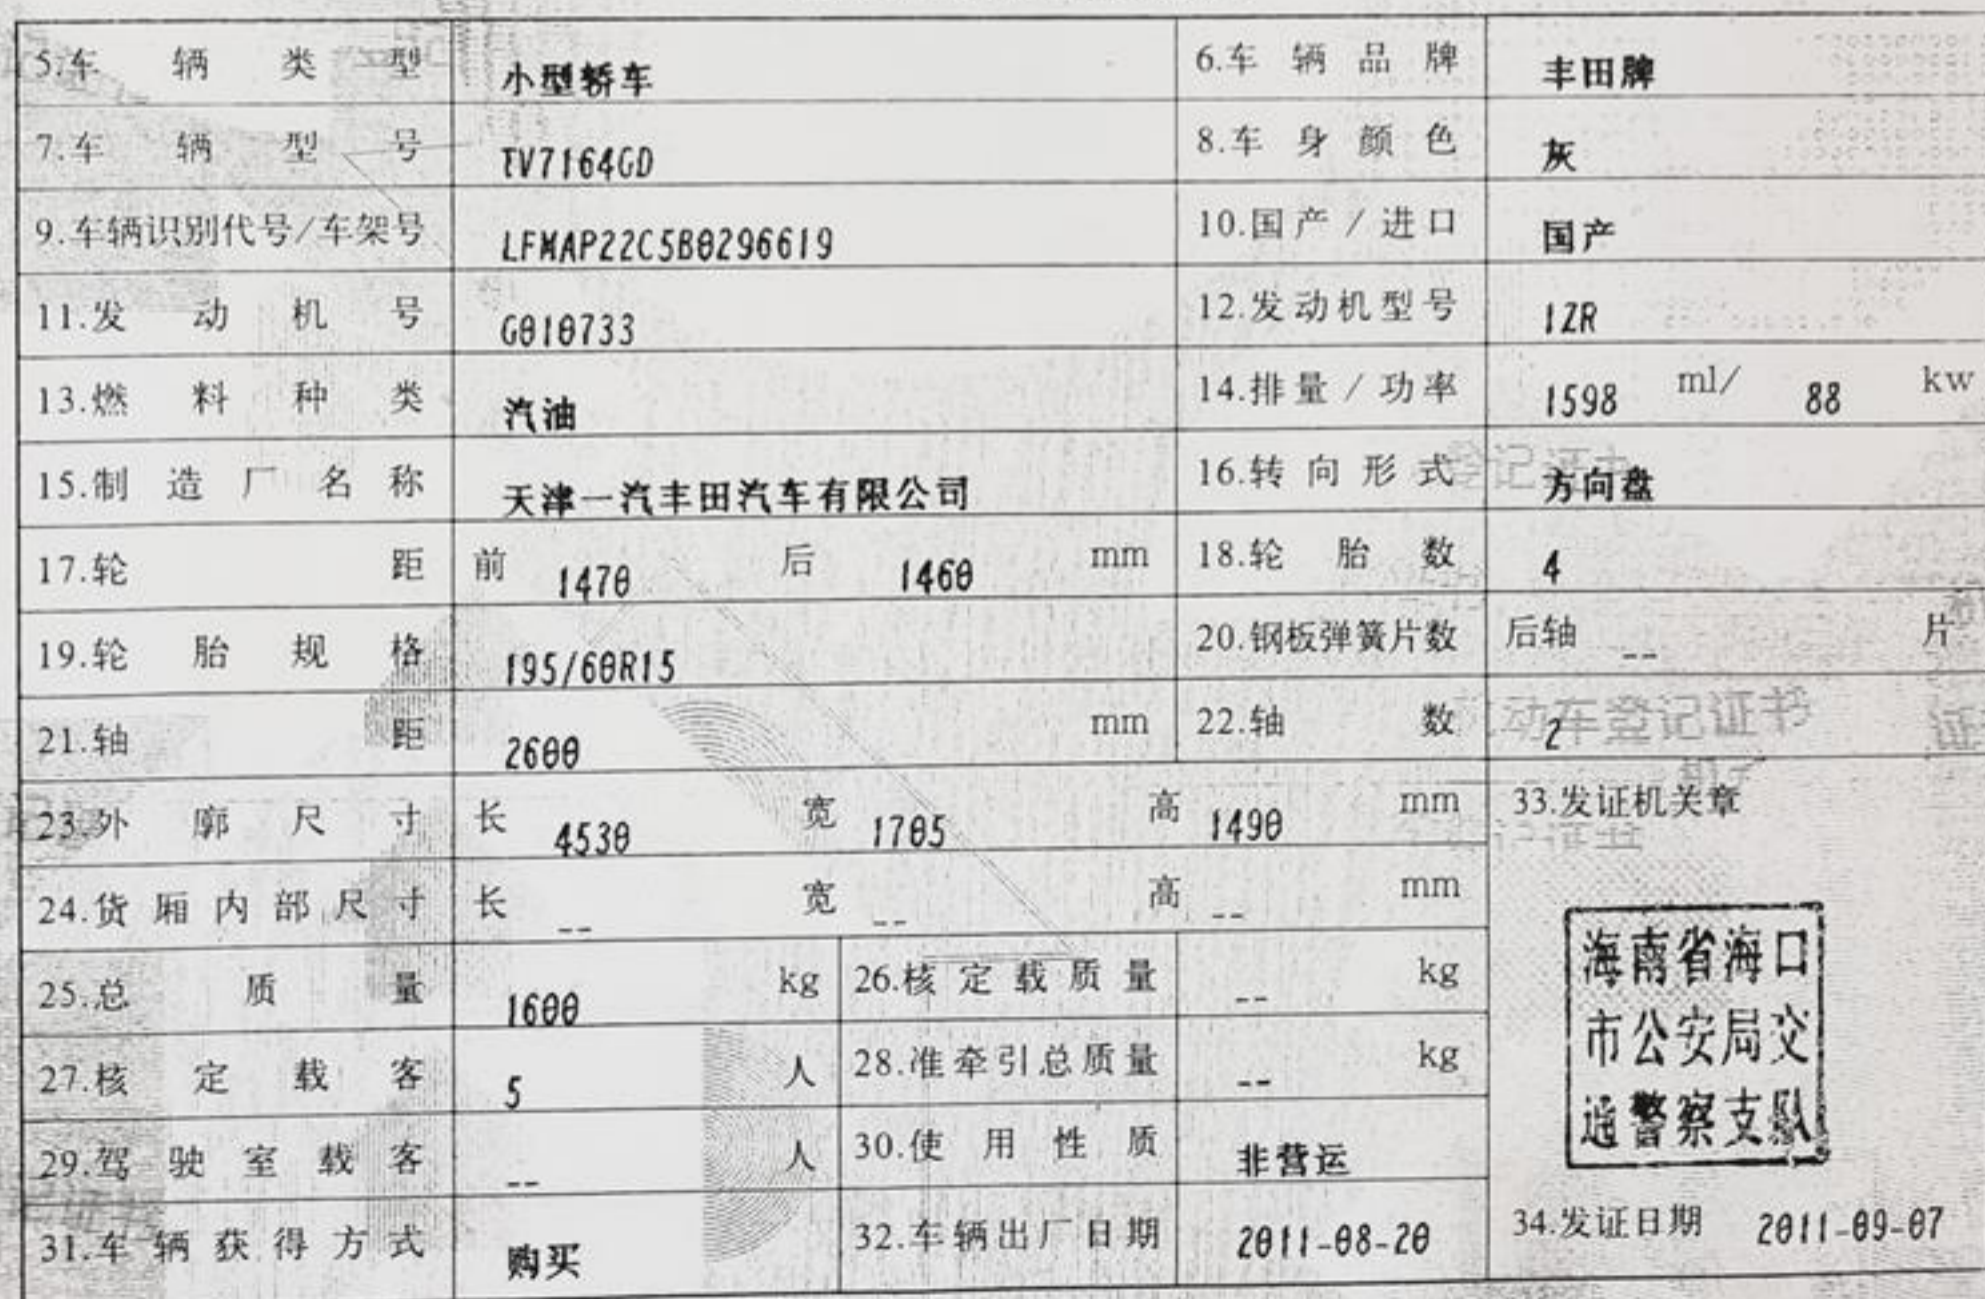 5.车辆类型 小型轿车 6.车辆品牌 丰田牌
7.车辆型号 TV7164GD 8.车身颜色 灰
9.车辆识别代号/车架号 LFMAP22C5B0296619 10.国产/进口 国产
11.发动机号 G010733 12.发动机型号 1ZR
13.燃料种类 汽油 14.排量/功率 1598 ml/ 88 kw
15.制造厂名称 天津一汽丰田汽车有限公司 16.转向形式 方向盘
17.轮距 前 1470 后 1460 mm 18.轮胎数 4
19.轮胎规格 195/60R15 20.钢板弹簧片数 后轴 -- 片
21.轴距 2600 mm 22.轴数 2
23.外廓尺寸 长 4530 宽 1705 高 1490 mm 33.发证机关章
24.货厢内部尺寸 长 -- 宽 -- 高 -- mm
25.总质量 1600 kg 26.核定载质量 -- kg
27.核定载客 5 人 28.准牵引总质量 -- kg
29.驾驶室载客 -- 人 30.使用性质 非营运
海南省海口
市公安局交
通警察支队
31.车辆获得方式 购买 32.车辆出厂日期 2011-08-20 34.发证日期 2011-09-07